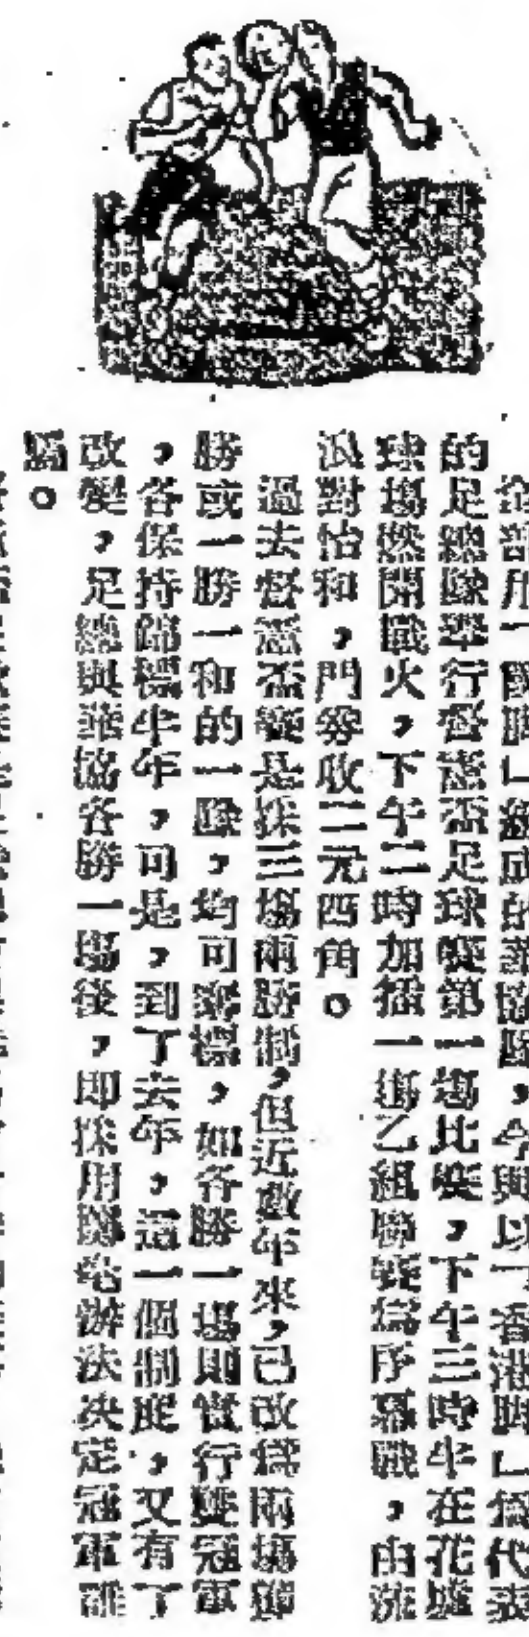 全部用「國脚」組成的華協隊，今與以「香港脚」爲代表
的足總隊舉行督憲盃足球賽第一塲比賽，下午三時半在花墟
球塲燃開戰火，下午二時加插一塲乙組聯賽爲序幕戰，由流
浪對怡和，門券收二元四角。
過去督憲盃賽是採三塲兩勝制，但近數年來，已改爲兩塲獨
勝或一勝一和的一隊，均可奪標，如各勝一塲則實行雙冠軍
，各保持錦標半年，可是，到了去年，這一個制度，又有了
改變，足總與華協各勝一塲後，即採用擲毫辦法決定冠軍誰
屬。